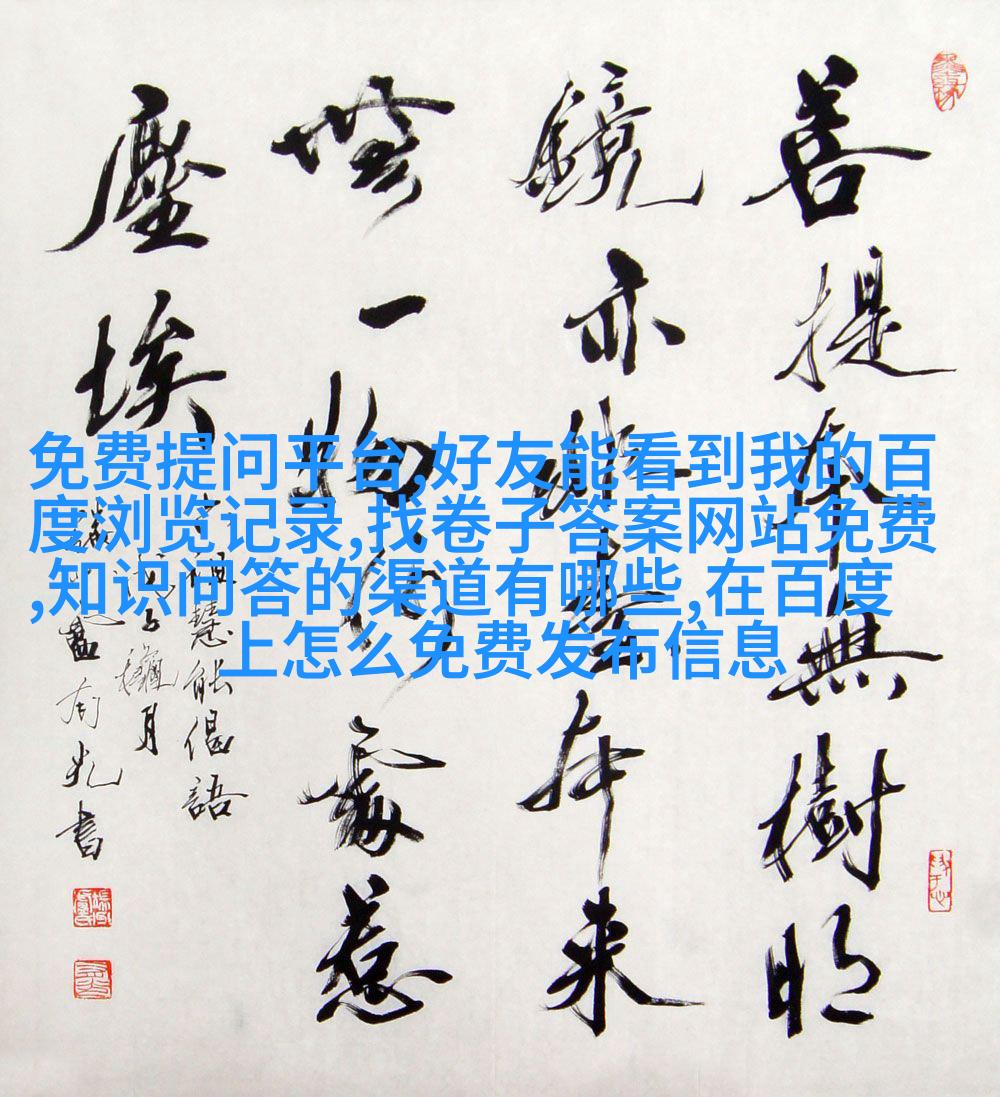 菩提本無樹明
鏡亦非臺本来
無一物何處惹
塵埃
慧能偈語
月
書
免费提问平台,好友能看到我的百
度浏览记录,找卷子答案网站免费
,知识问答的渠道有哪些,在百度
上怎么免费发布信息